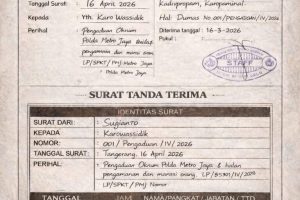 Tanggal Surat : 16 April 2026
Kadivpropam, Karopaminal
Kepada : Yth. Karo Wassidik
Hal: Dumas No. 001/PENGADUAN/IV/2026
Perihal : Pengaduan Oknum
Diterima tanggal : 16-3-2026
Polda Metro Jaya
Pukul :
pengamanan dan
STAFF
LP/SKPT / PMJ Metro Jaya
Polda Metro Jaya
SURAT TANDA TERIMA
IDENTITAS SURAT
SURAT DARI : Sugianto
KEPADA : Karowassidik
NOMOR : 001 / Pengaduan / IV / 2026
TANGGAL SURAT : Tangerang, 16 April 2026
PERIHAL : Pengaduan Oknum Polda Metro Jaya &
pengamanan dan
LP/SPKT / PMJ Nomor
TANGGAL JAM NAMA/PANGKAT / JABATAN / TTD